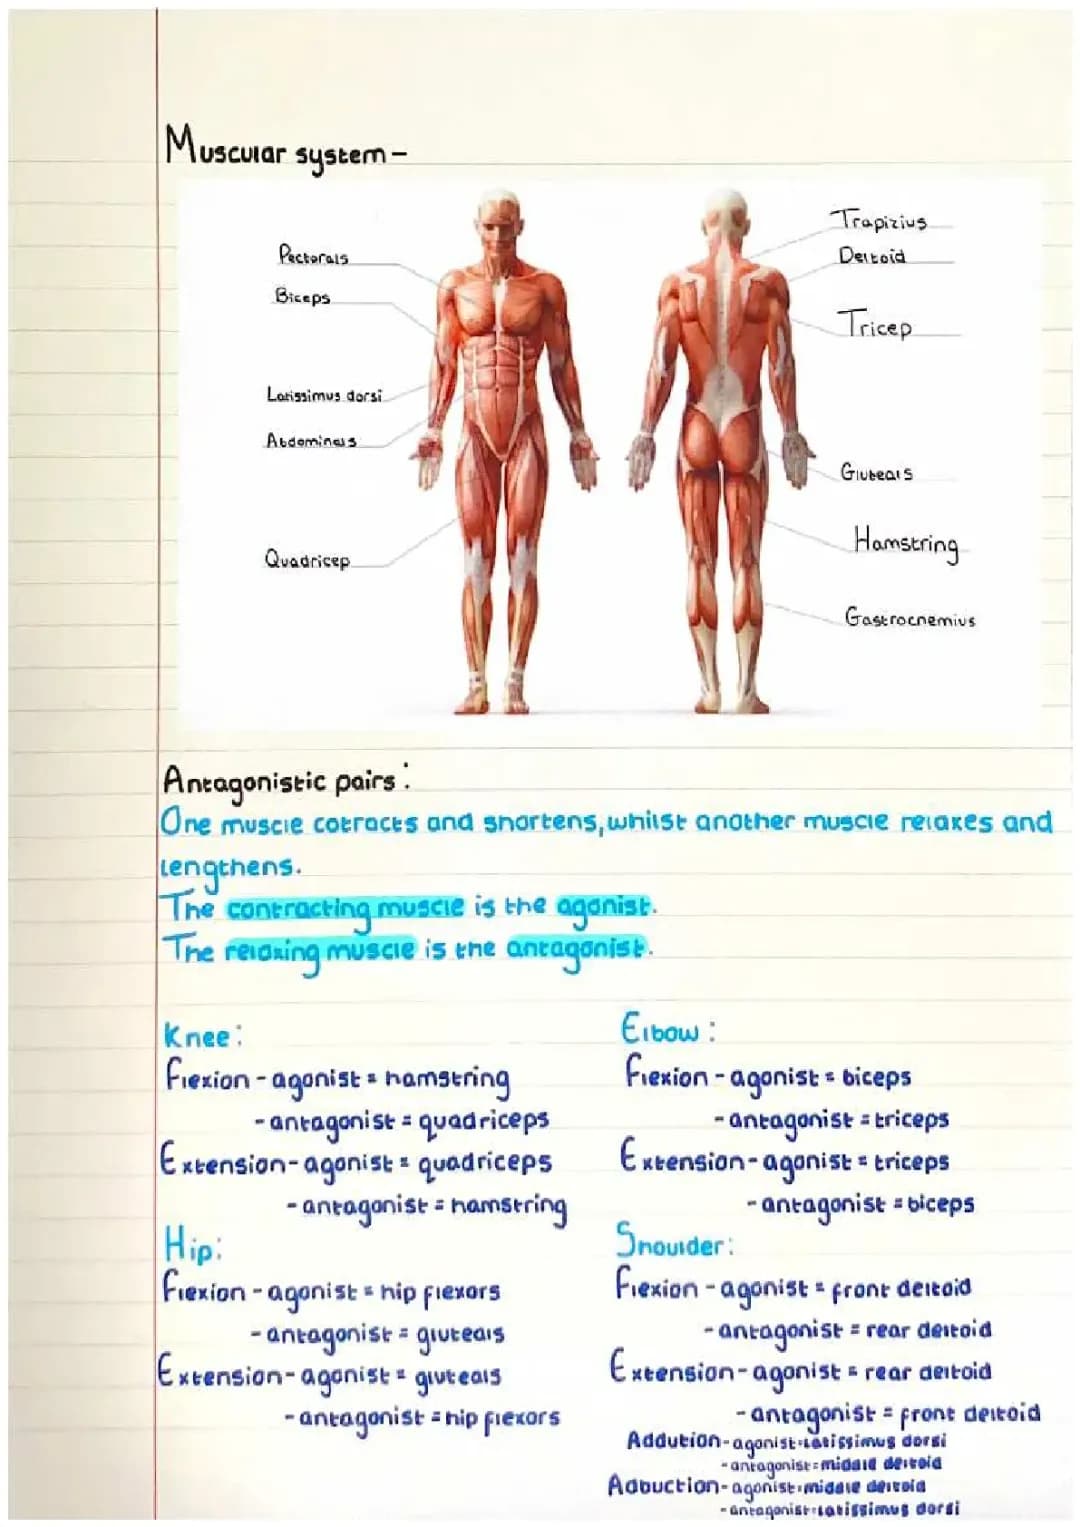 Muscular system-
Pectorals
Biceps
Latissimus dorsi
Abdominals
Quadricep
Trapizius
Deltoid
Tricep
Gluteals
Hamstring
Gastrocnemius
Antagonistic pairs:
One muscle cotracts and shortens, whilst another muscle relaxes and
lengthens.
The contracting muscle is the agonist.
The relaxing muscle is the antagonist.
Knee:
Flexion - agonist = hamstring
- antagonist = quadriceps
Extension - agonist = quadriceps
- antagonist = hamstring
Hip:
Flexion - agonist = hip flexors
- antagonist = gluteals
Extension - agonist = gluteals
- antagonist = hip flexors
Elbow:
Flexion - agonist = biceps
- antagonist = triceps
Extension - agonist = triceps
- antagonist = biceps
Shoulder:
Flexion - agonist = front deltoid
- antagonist = rear deltoid
Extension - agonist = rear deltoid
- antagonist = front deltoid
Addution - agonist = latissimus dorsi
- antagonist = middle deltoid
Abduction - agonist = middle deltoid
- antagonist = latissimus dorsi